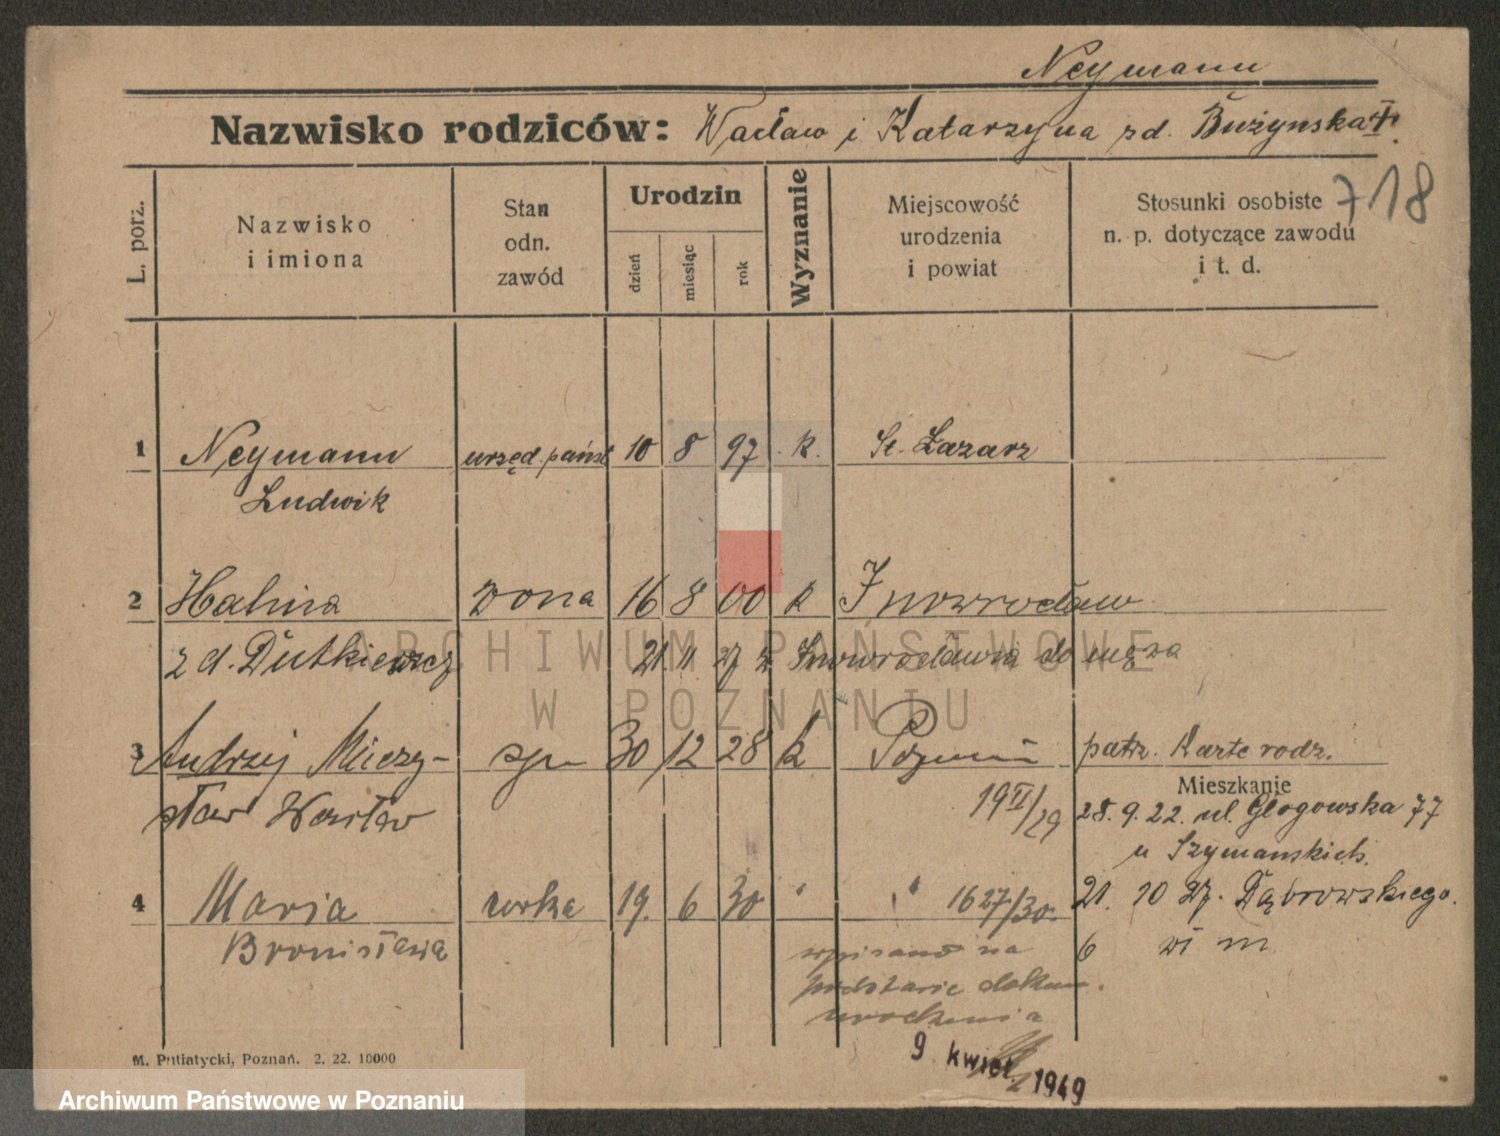 Neymann
Nazwisko rodziców: Wacław i Katarzyna zd. Bużynska
718
L. porz.
Nazwisko
i imiona
Stan
odn.
zawód
Urodzin
dzień
miesiąc
rok
Wyznanie
Miejscowość
urodzenia
i powiat
Stosunki osobiste
n. p. dotyczące zawodu
i t. d.
1 Neymann urzęd. państ 10 8 97 k. St. Łazarz
Ludwik
2 Halina żona 16 8 00 k Inowrocław
z d. Dutkiewicz 21. 11 27 z Inowrocławia do męża
3 Andrzej Mieczy- syn 30/12 28 k Poznań patrz. Karte rodz.
Mieszkanie
sław Wacław 19 II/29 28. 9. 22. ul. Głogowska 77
u Szymanskich.
4 Maria córka 19. 6 30 " " 1627/30. 21. 10 27. Dąbrowskiego.
Bronisława wpisano na 6 m
podstawie dokum.
urodzenia
9. kwiet. 1949
M. Putiatycki, Poznań. 2. 22. 10000
ARCHIWUM PAŃSTWOWE
W POZNANIU
Archiwum Państwowe w Poznaniu